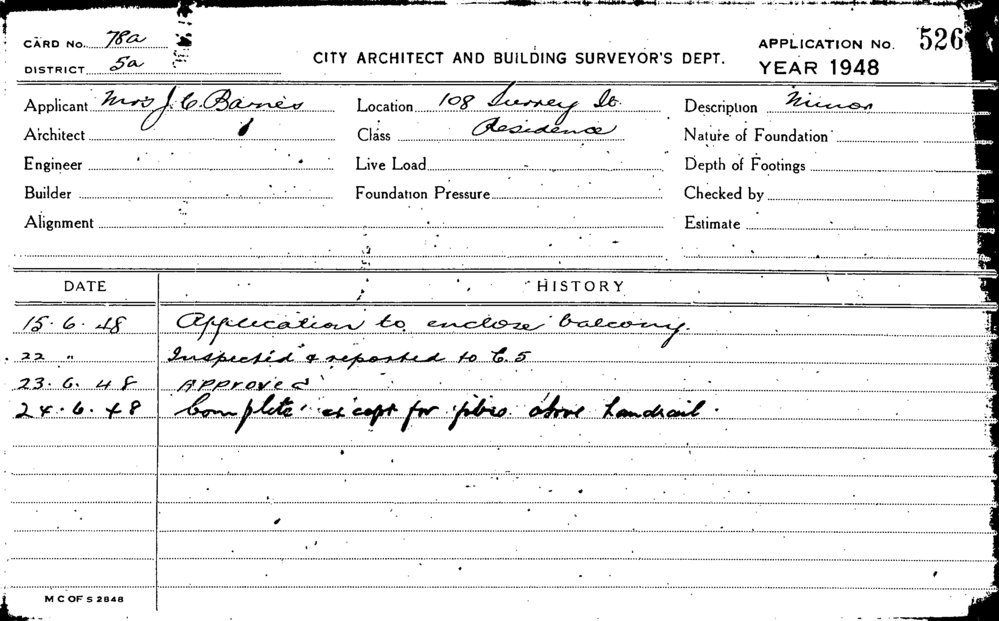 CARD No. 78a
DISTRICT 5a
CITY ARCHITECT AND BUILDING SURVEYOR'S DEPT.
APPLICATION No. 526
YEAR 1948
Applicant Mrs J. C. Barnes Location 108 Surrey St. Description Minor
Architect Class Residence Nature of Foundation
Engineer Live Load Depth of Footings
Builder Foundation Pressure Checked by
Alignment Estimate
DATE HISTORY
15.6.48 Application to enclose balcony.
22 " Inspected & reported to C.S
23.6.48 APProved
24.6.48 Complete except for fibro above handrail.
M C OF S 2848